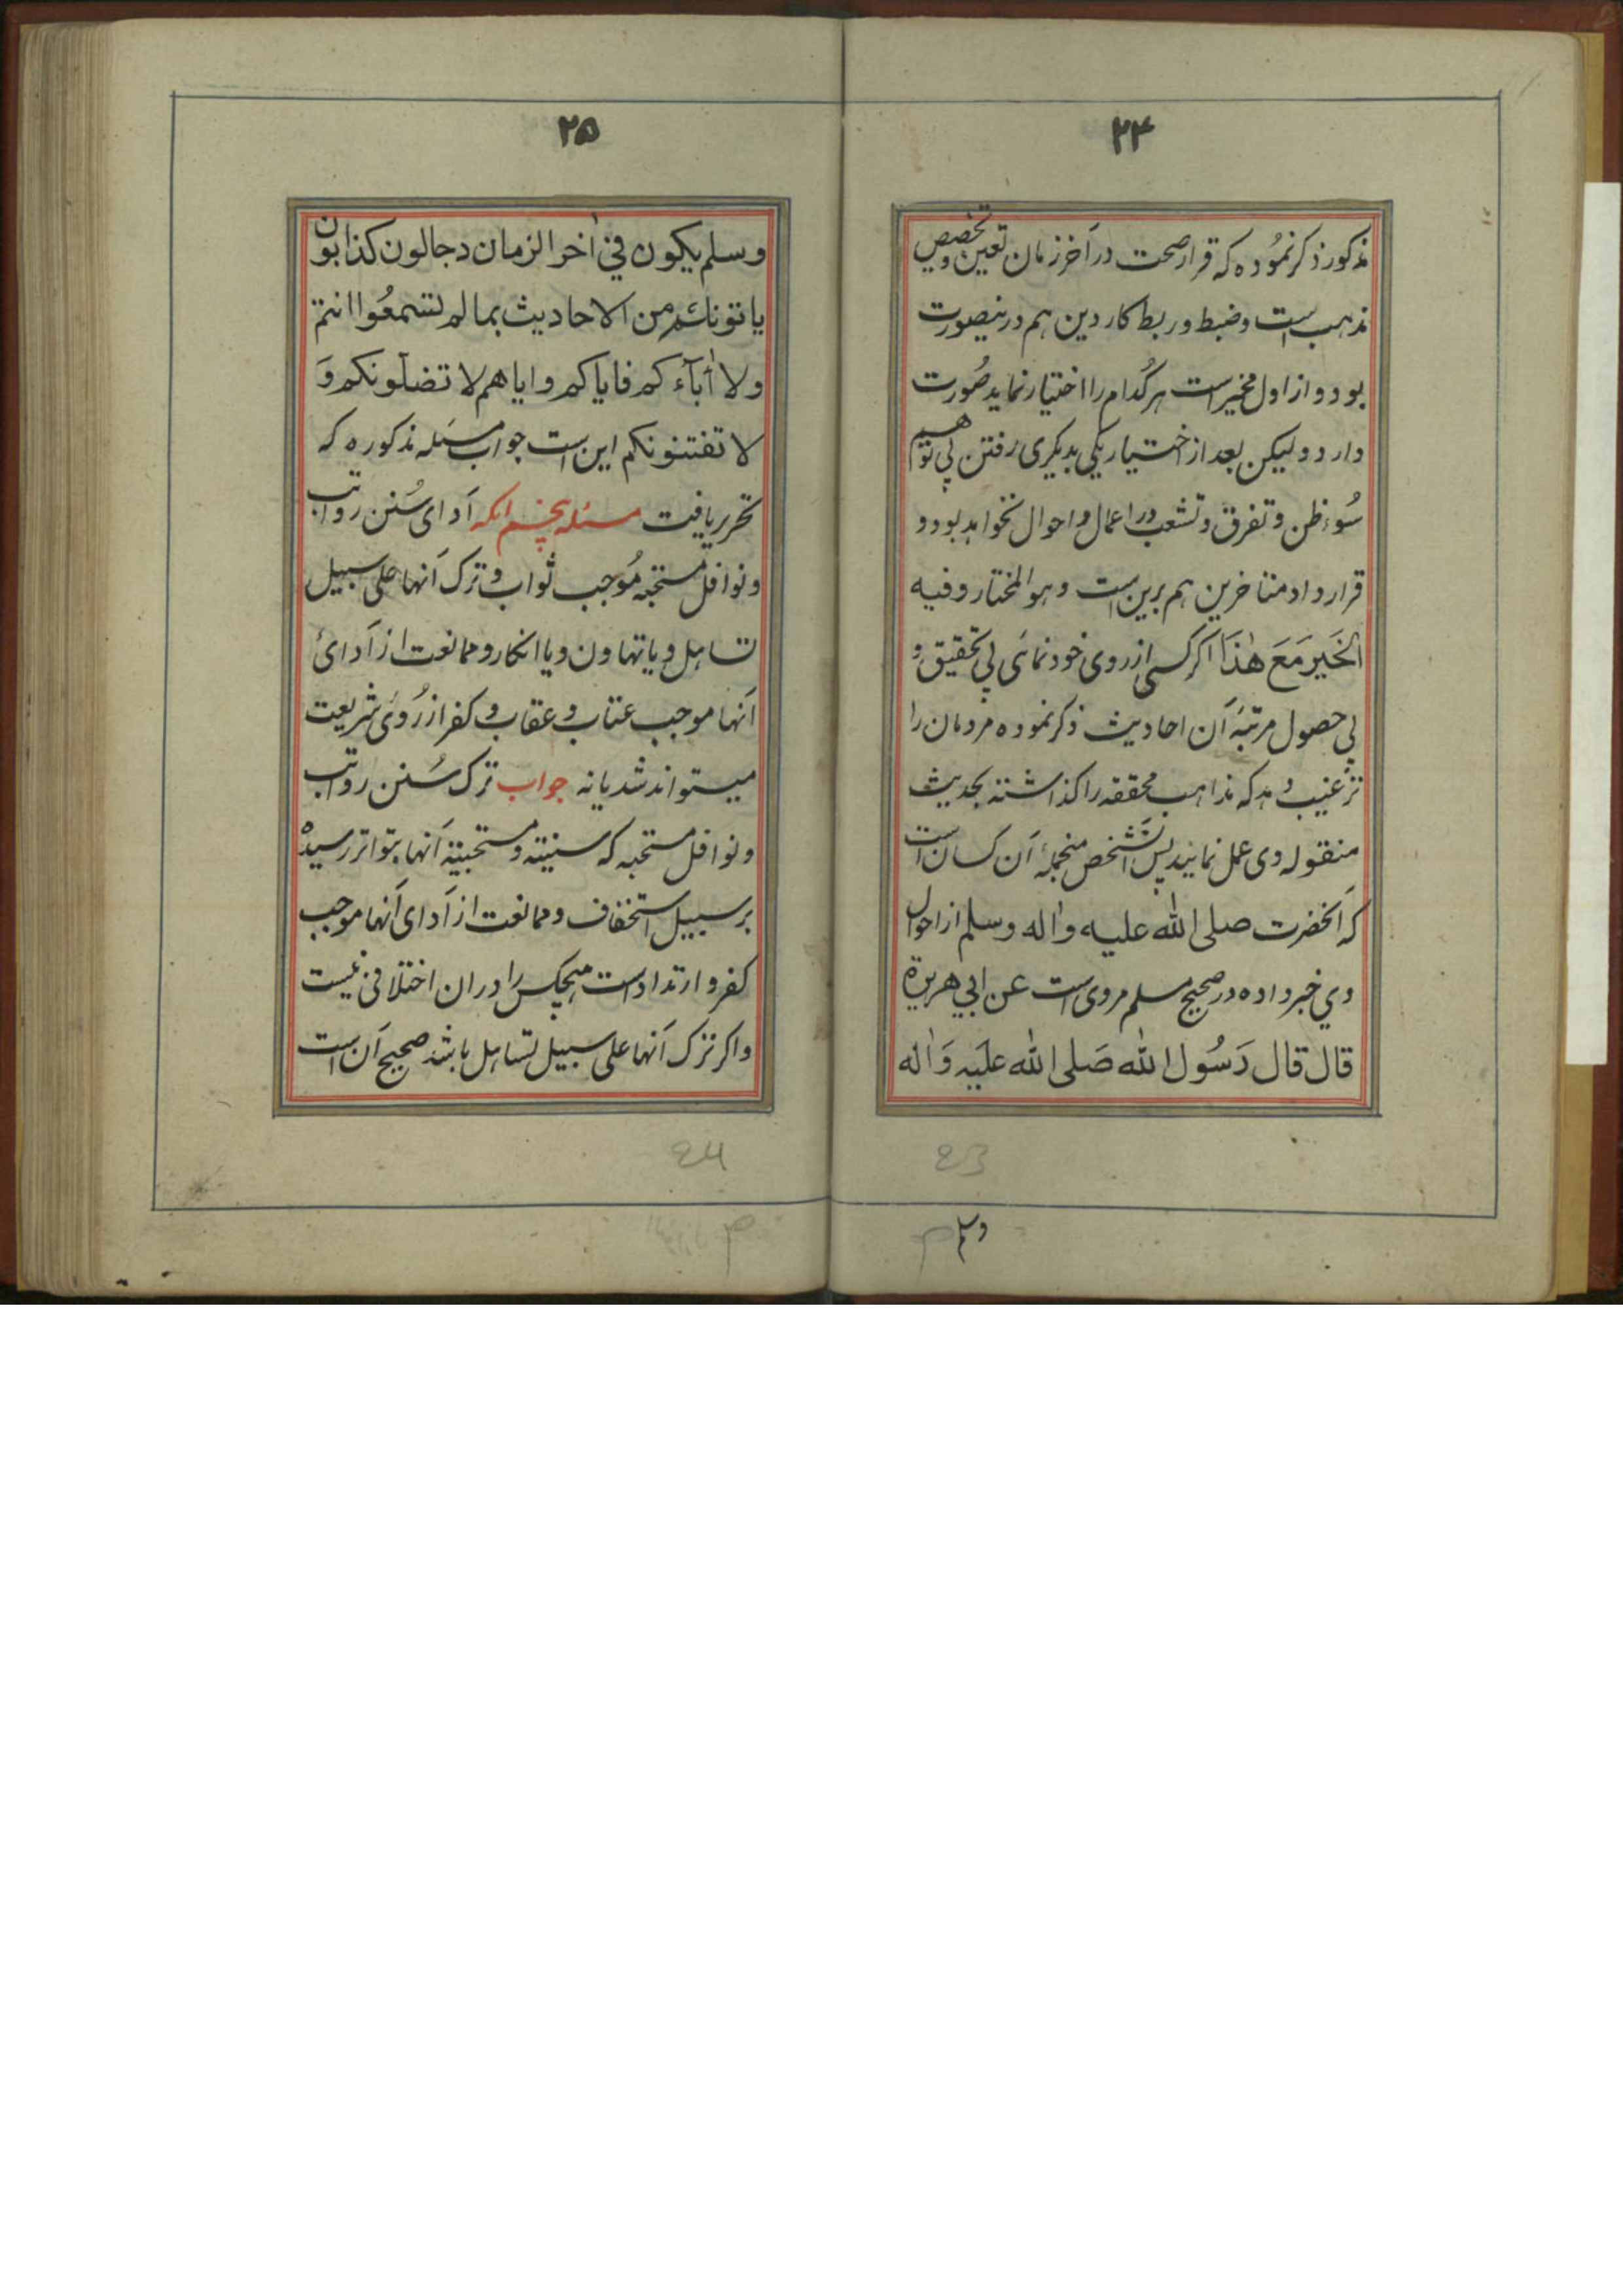 ۲۴
مذکور ذکر نمُوده که قرار صحت در آخر زمان تعین و تخصیص
مذہب است وضبط و ربط کار دین ہم درینصورت
بود و از اول مخیر است ہر کُدام را اختیار نماید صُورت
دارد و لیکن بعد از اختیار یکی بدیکری رفتن بی توهم
سُوء ظن و تفرق و تشعب در اعمال و احوال نخواہد بود و
قرارداد متاخرین ہم برین است وہو المختار وفیه
الخَیر مَعَ هٰذَا اکر کسی از روی خود نمائی بی تحقیق و
بی حصول مرتبهٔ آن احادیث ذکر نموده مردمان را
ترغیب دہد که مذاہب محققه را کذاشته بحدیث
منقوله وی عمل نمایند پس آنشخص منجملهٔ آن کسان است
که آنحضرت صلی الله علیه واٰله وسلم از احوال
وی خبر داده در صحیح مسلم مروی است عن ابي هریرة
قال قال رَسُول الله صَلی الله علَیه وَاٰله
23
وسلم
۲۵
وسلم یکون في اٰخر الزمان دجالون کذابون
یاتونکم من الاحادیث بما لم تسمعُوا انتم
ولا اٰبآءکم فایاکم وایاهم لا تضلونکم وَ
لا تفتنونکم این است جواب مسئله مذکوره که
تحریر یافت مسئله پنجم آنکه آدای سُنن رواتب
و نوافل مستحبه مُوجب ثواب و ترک آنها علی سبیل
تساہل و یا تهاون و یا انکار و ممانعت از آدائ
آنها موجب عتاب و عقاب و کفر از رُوی شریعت
میتواند شد یا نه جواب ترک سُنن رواتب
و نوافل مستحبه که سنیته و مستحبیته آنها بتواتر رسیده
بر سبیل استخفاف و ممانعت از آدای آنها موجب
کفر و ارتداد است ہیچکس را دران اختلافی نیست
و اکر ترک آنها علی سبیل تساہل باشد صحیح آن است
24